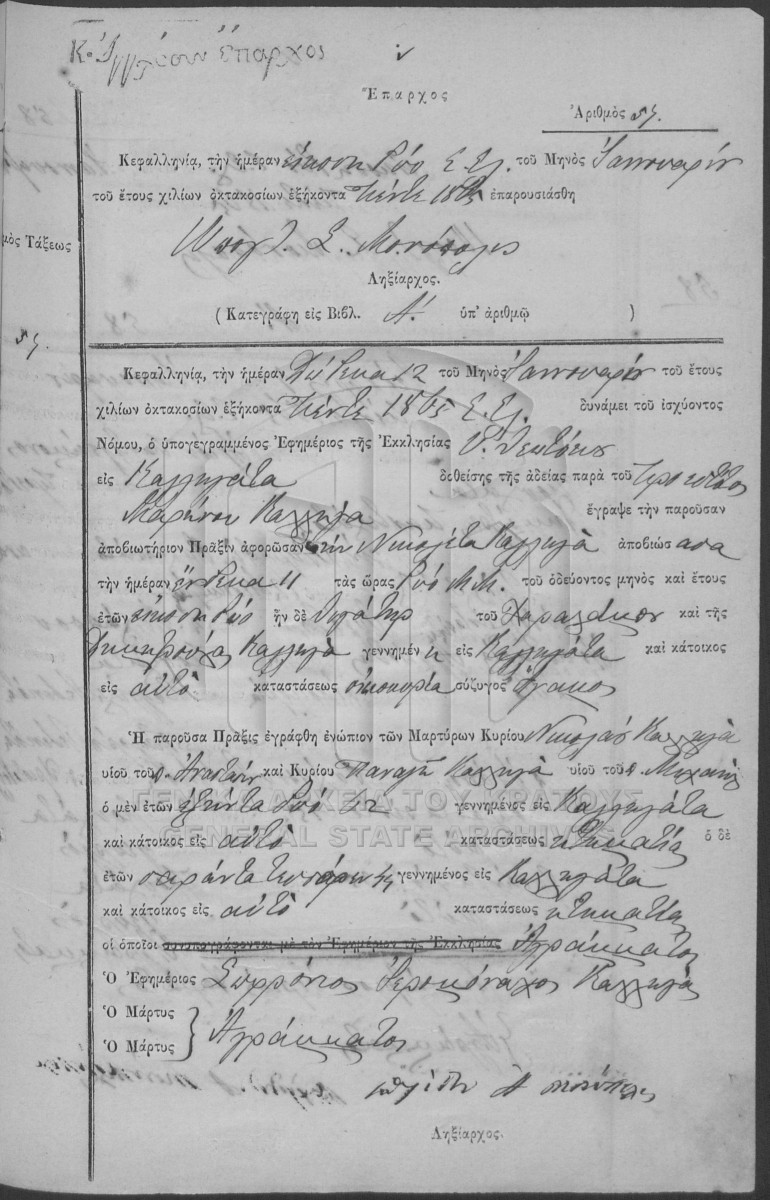 Ἔπαρχος
Ἔπαρχος
Ἀριθμὸς 57.
Κεφαλληνίᾳ, τὴν ἡμέραν εἴκοση δύο Ε.Ε. τοῦ Μηνὸς Ἰαννουαρίου
τοῦ ἔτους χιλίων ὀκτακοσίων ἑξήκοντα πέντε 1865 ἐπαρουσιάσθη
Ληξίαρχος.
( Κατεγράφη εἰς Βιβλ. Α΄. ὑπ' ἀριθμῷ )
μὸς Τάξεως
57.
Κεφαλληνίᾳ, τὴν ἡμέραν δώδεκα 12 τοῦ Μηνὸς Ἰαννουαρίου τοῦ ἔτους
χιλίων ὀκτακοσίων ἑξήκοντα πέντε 1865 Ε.Ε. δυνάμει τοῦ ἰσχύοντος
Νόμου, ὁ ὑπογεγραμμένος Ἐφημέριος τῆς Ἐκκλησίας
εἰς Καλληγάτα δοθείσης τῆς ἀδείας παρὰ τοῦ
Μαρήνου Καλληγᾶ ἔγραψε τὴν παροῦσαν
ἀποβιωτήριον Πρᾶξιν ἀφορῶσαν τὴν Νικολέτα Καλληγᾶ ἀποβιώσασα
τὴν ἡμέραν ἕνδεκα 11 τὰς ὥρας δύο Μ.Μ. τοῦ ὁδεύοντος μηνὸς καὶ ἔτους
ἐτῶν εἴκοση δύο ἦν δὲ θυγάτηρ τοῦ Χαραλάμπου καὶ τῆς
Καλληγᾶ γεννημένη εἰς Καλληγάτα καὶ κάτοικος
εἰς αὐτὸ καταστάσεως οἰκοκυρία σύζυγος
Ἡ παροῦσα Πρᾶξις ἐγράφθη ἐνώπιον τῶν Μαρτύρων Κυρίου Νικολάου Καλληγᾶ
υἱοῦ τοῦ π. Ἀναστάση καὶ Κυρίου Παναγῆ Καλληγᾶ υἱοῦ τοῦ π. Μιχαὴλ
ΓΕΝΙΚΑ ΑΡΧΕΙΑ ΤΟΥ ΚΡΑΤΟΥΣ
ὁ μὲν ἐτῶν ἑξήντα δύο 62 γεννημένος εἰς Καλληγάτα
GENERAL STATE ARCHIVES
καὶ κάτοικος εἰς αὐτὸ καταστάσεως κτηματίας ὁ δὲ
ἐτῶν σαράντα τεσσάρων 44 γεννημένος εἰς Καλληγάτα
καὶ κάτοικος εἰς αὐτὸ καταστάσεως κτηματίας
οἱ ὁποῖοι συνυπογράφονται μὲ τὸν Ἐφημέριον τῆς Ἐκκλησίας Ἀγράμματοι
Ὁ Ἐφημέριος Σωφρόνιος Ἱερομόναχος Καλληγᾶς
Ὁ Μάρτυς
Ὁ Μάρτυς Ἀγράμματοι
Ληξίαρχος.